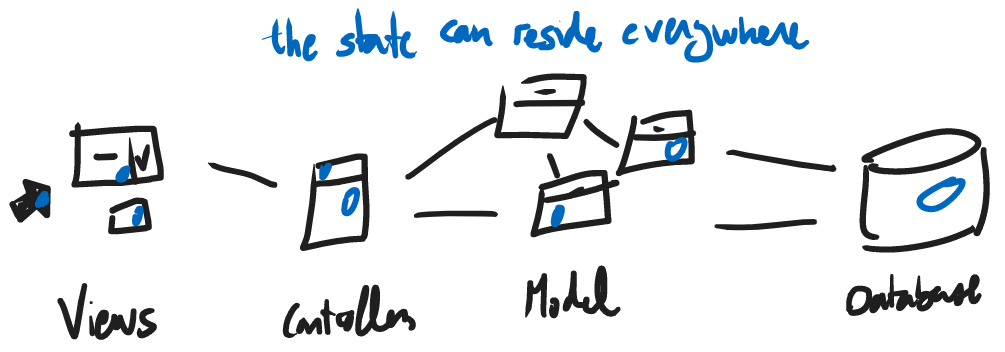 the state can reside everywhere
Views Controllers Model Database